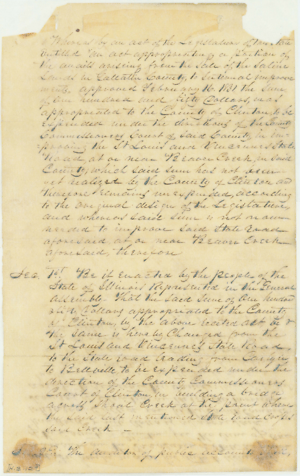 Whereas by an act of the Legislature of this State
entitled "An act appropriating a Portion of
the avails arising from the sale of the Saline
Lands in Gallatin County, to internal improve
ments, approved February 16. 1831 the sum
of one hundred and fifty Dollars, was
appropriated to the County of Clinton to be
expended under the direction of the County
Commissioners Court of said County, in im
proving the St Louis and Vincennes State
Road at or near Beaver Creek in said
County which said sum has not been
realized by the County of Clinton, and
therefore remains unexpended, according
to the original design of the Legislature,
and whereas said sum is not now
needed to improve said State Road
aforesaid at or near Beaver Creek
aforesaid, therefore
Sec. 1st. Be it enacted by the people of the
State of Illinois Represented in the General
Assembly That the said sum of one hundred
Dollars appropriated to the County
of Clinton, by the above recited act be &
the same is hereby changed from the
St Louis and Vincennes State Road
to the State Road leading from Carlyle
to Belleville to be expended under the
direction of the County Commissioners
Court of Clinton in building a bridge
across Shoal Creek at the point where
the said State Road
said Creek
The auditor of public accounts